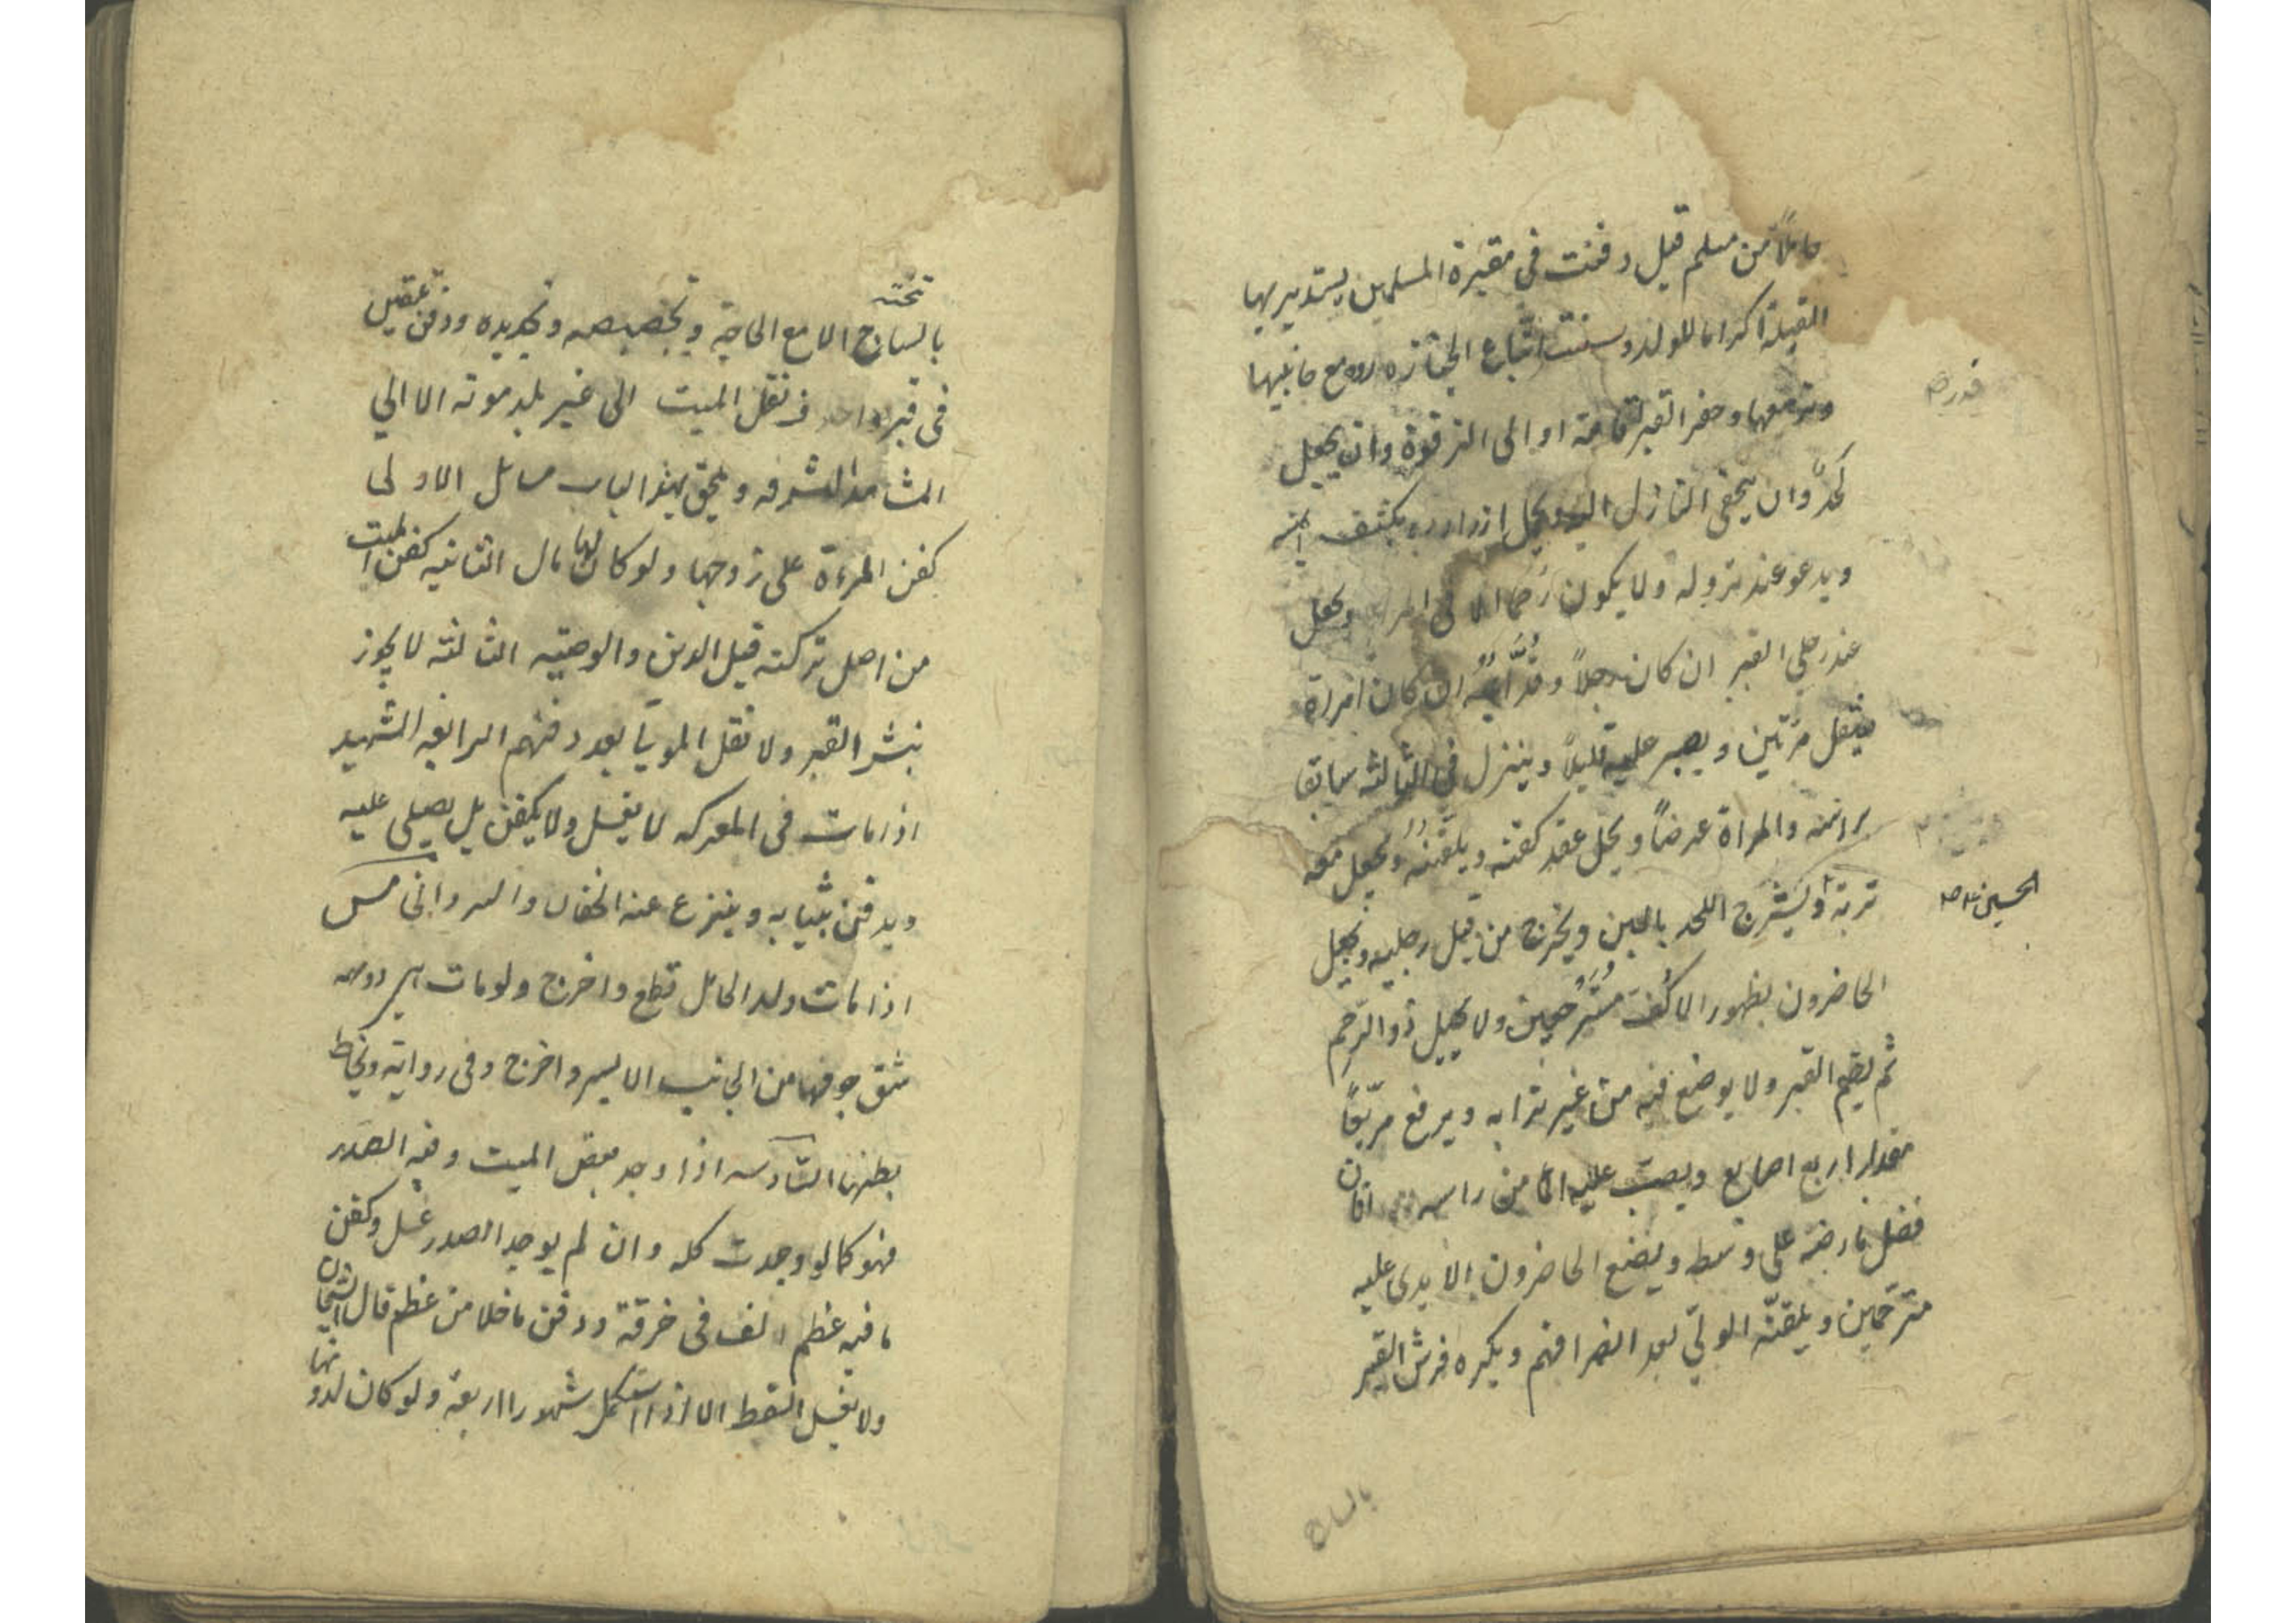 حاملاً من مسلم قيل دفنت في مقبرة المسلمين يستدبر بها
القبلة اكراما للولد وسننه اتباع الجنازه او مع جانبيها
وتربيعها وحفر القبر قامة او الى الترقوة وان يجعل
لحدٌ وان يتحفى النازل اليه ويحل ازراره ويكشف راسه
ويدعو عند نزوله ولا يكون رحما الا في المراة ويجعل
عند رجلي القبر ان كان رجلاً وقُدّامَه ان كان امراة
فينقل مرّتين ويصبر عليه قليلاً وينزل في الثالثه سابقا
براسه والمراة عرضاً ويحل عقد كفنه ويلقنهُ ويجعل معه
تربة ويَشرَج اللحد باللبن ويخرج من قبل رجليه ويهيل
الحسين ع
الحاضرون بظهور الاكُفّ مُسْتَرجعين ولا يهيل ذو الرّحم
ثم يطمّ القبر ولا يوضع فيه من غير ترابه ويرفع مربّعاً
مقدار اربع اصابع ويصبّ عليه الماء من راسه فان
فضل ماء رشه على وسطه ويضع الحاضرون الايدى عليه
مترحّمين ويلقنّه الولّي بعد انصرافهم ويكره فرش القبر
بالساج
بالساج الا مع الحاجة وتجصيصه وتجديده ودفن ميتين
في قبر واحد ونقل الميت الى غير بلد موته الا الي
المشاهد المشرفه ويلحق بهذا الباب مسائل الاولى
كفن المرءة على زوجها ولو كان لها مال الثانيه كفن الميت
من اصل تركته قبل الدين والوصيّه الثالثه لا يجوز
نبش القبر ولا نقل الموتىٰ بعد دفنهم الرابعه الشهيد
اذا مات في المعركه لا يغسل ولا يكفن بل يصلى عليه
ويدفن بثيابه وينزع عنه الخفان والفرو الخامس
اذا مات ولد الحامل قطع واخرج ولو ماتت هي دونه
شق جوفها من الجانب الايسر واخرج وفى رواية وتخاط
بطنها السّادسه اذا وجد بعض الميت وفيه الصَدر
فهو كما لو وجدت كله وان لم يوجد الصدر غسل وكفن
ما فيه عظم ولف في خرقة ودفن ما خلا من عظم قال الشيخان
ولا يغسل السّقط الا اذا استكمل شهورا اربعة ولو كان لدونها